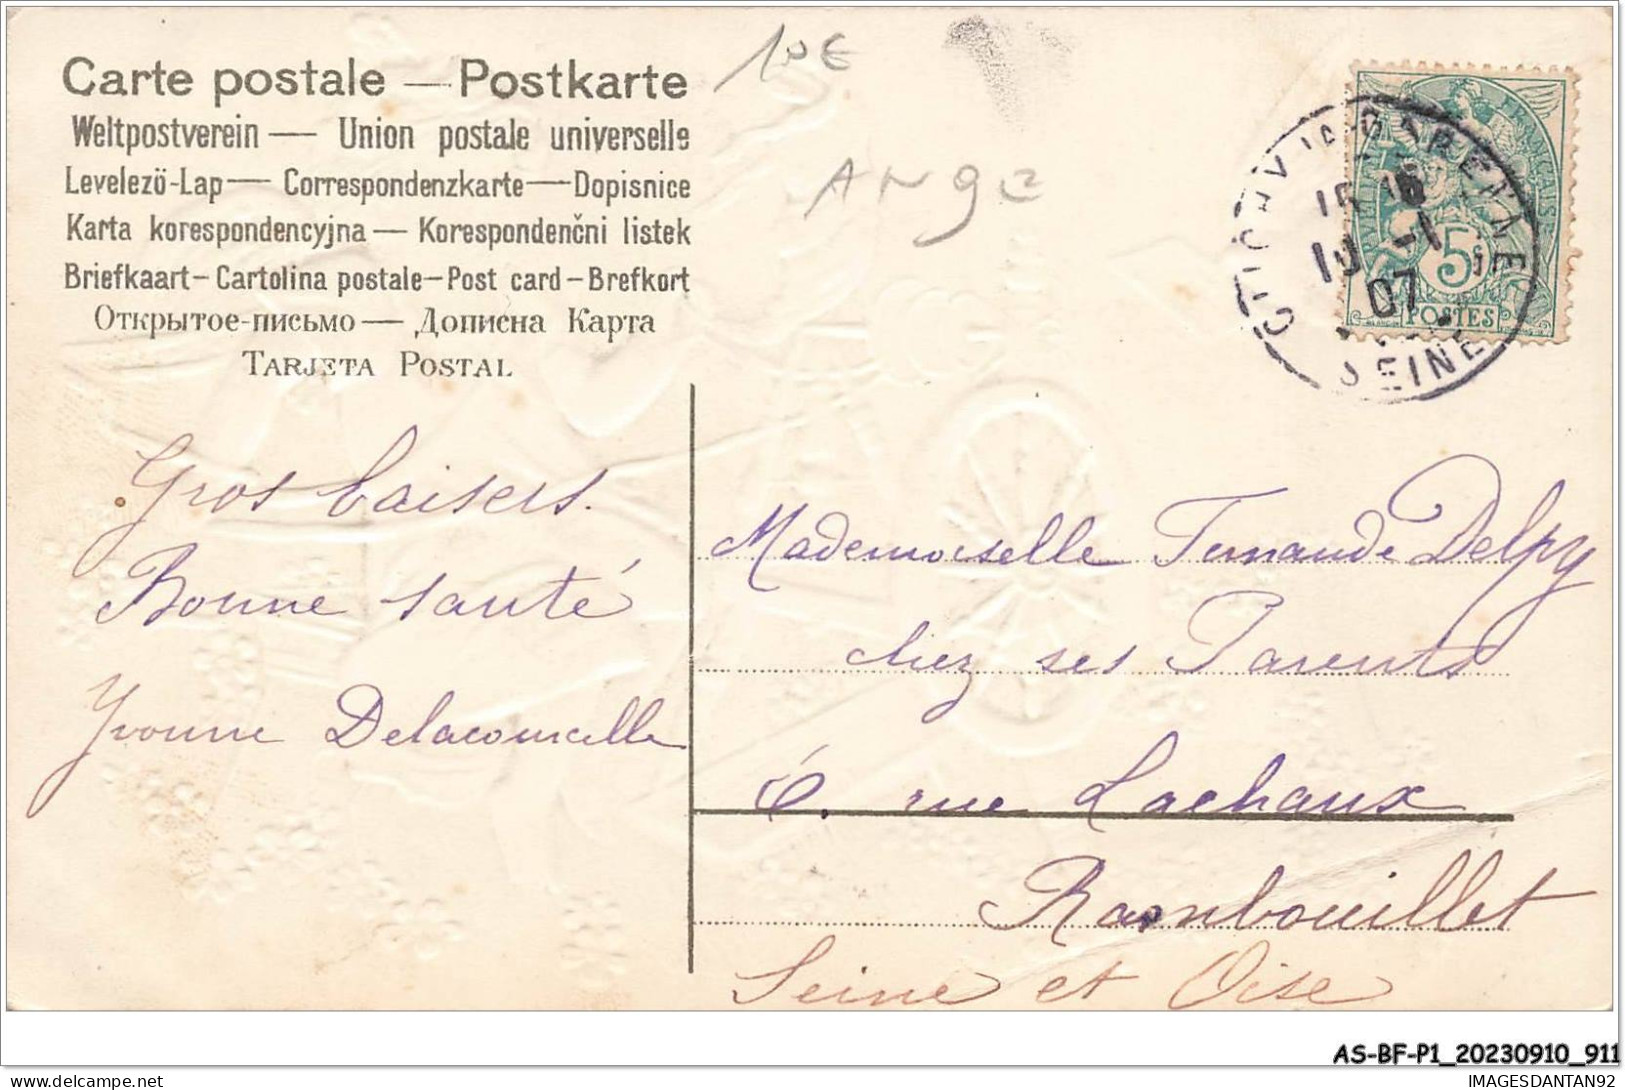 Carte postale — Postkarte
Weltpostverein — Union postale universelle
Levelezö-Lap — Correspondenzkarte — Dopisnice
Karta korespondencyjna — Korespondenčni listek
Briefkaart – Cartolina postale – Post card – Brefkort
Открытое-письмо — Дописна Карта
TARJETA POSTAL
10€
ANGE
RÉPUBLIQUE FRANÇAISE
5c
POSTES
GARENNE
10 -1
07
SEINE
Gros baisers.
Bonne santé
Yvonne Delacourcelle
Mademoiselle Fernande Delpy
chez ses Parents
6. rue Lachaux
Rambouillet
Seine et Oise
AS-BF-P1_20230910_911
delcampe.net
IMAGESDANTAN92